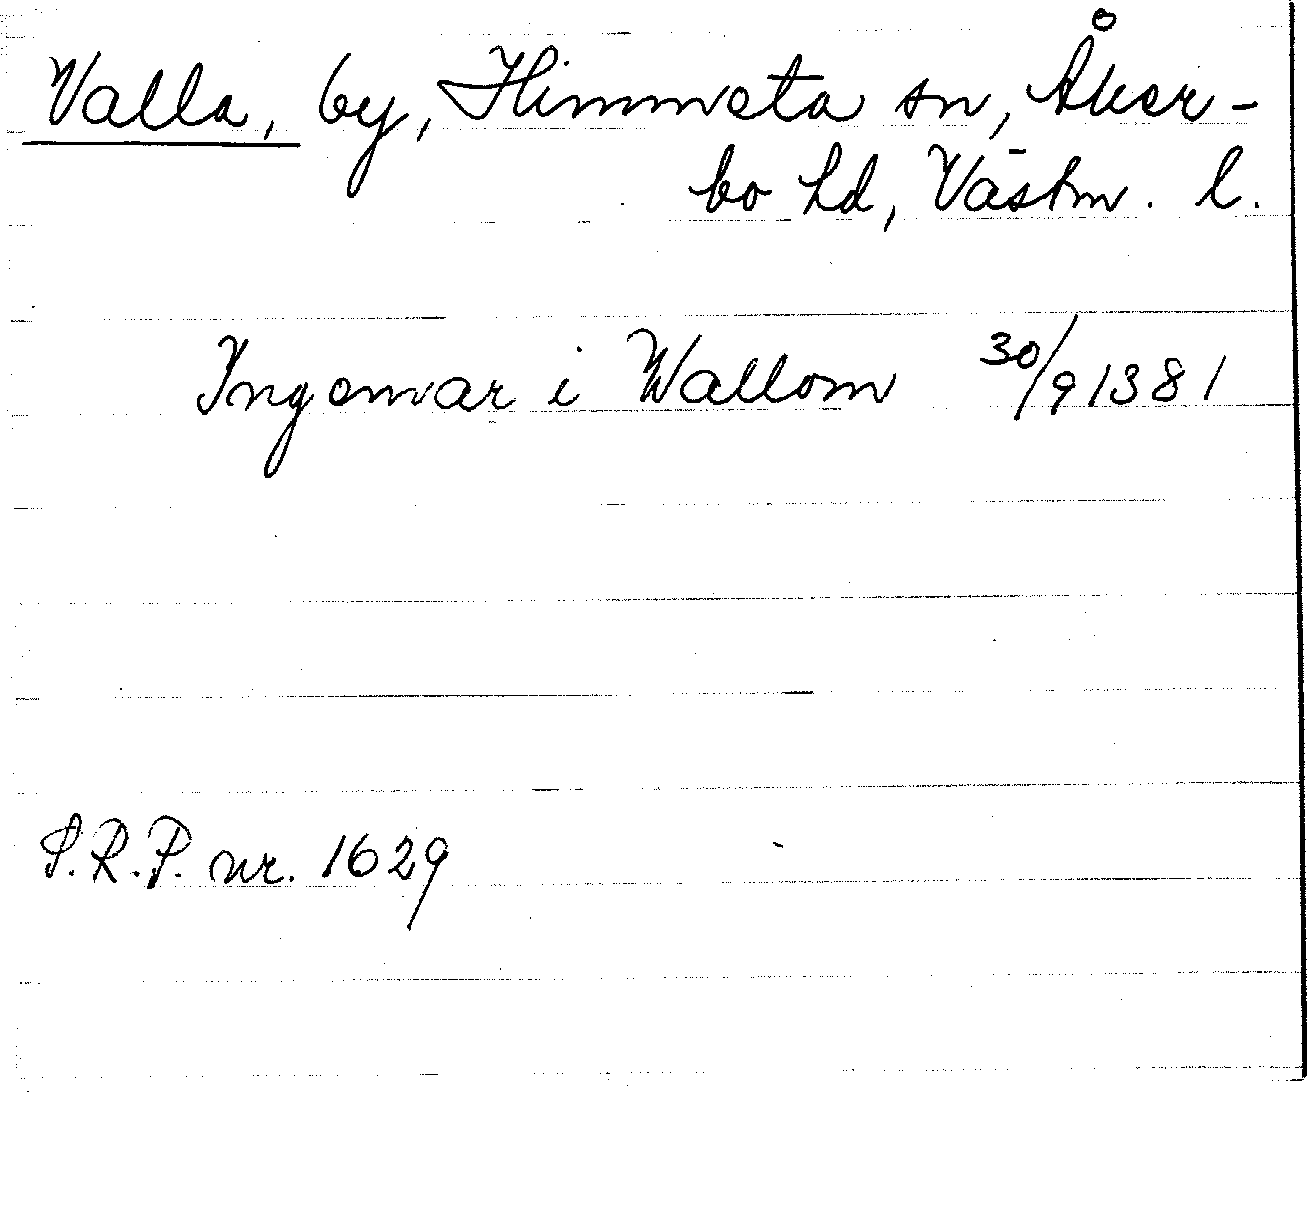 Valla, by, Himmeta sn, Åker-
bo hd, Västm. l.
Ingemar i Wallom 30/9 1381
S.R.P. nr. 1629